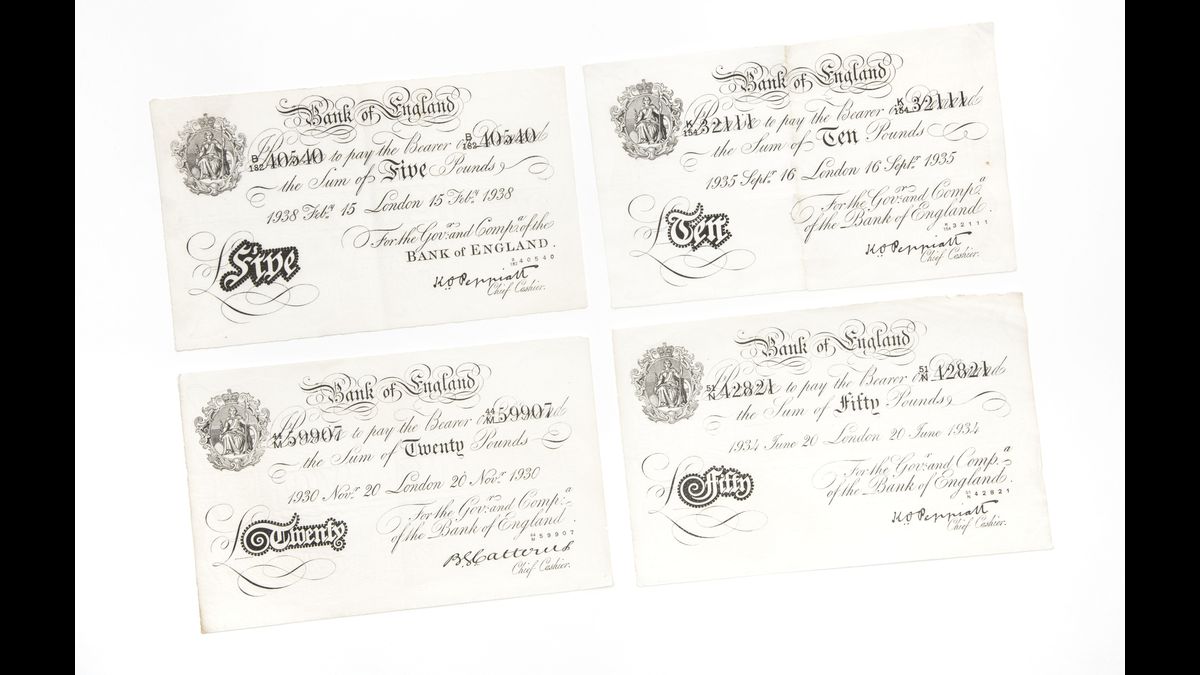 Bank of England
B/182 40540 B/182 40540
Promise to pay the Bearer on Demand
the Sum of Five Pounds
1938 Feby. 15 London 15 Feby. 1938
For the Govr. and Compa. of the
BANK of ENGLAND.
B/182 40540
£Five
K.O. Peppiatt
Chief Cashier.
Bank of England
K/154 32111 K/154 32111
Promise to pay the Bearer on Demand
the Sum of Ten Pounds
1935 Septr. 16 London 16 Septr. 1935
For the Govr. and Compa.
of the Bank of England.
K/154 32111
£Ten
K.O. Peppiatt
Chief Cashier.
Bank of England
44/M 59907 44/M 59907
Promise to pay the Bearer on Demand
the Sum of Twenty Pounds
1930 Novr. 20 London 20 Novr. 1930
For the Govr. and Compa.
of the Bank of England.
44/M 59907
£Twenty
B.G. Catterns
Chief Cashier.
Bank of England
51/N 42821 51/N 42821
Promise to pay the Bearer on Demand
the Sum of Fifty Pounds
1934 June 20 London 20 June 1934
For the Govr. and Compa.
of the Bank of England.
51/N 42821
£Fifty
K.O. Peppiatt
Chief Cashier.